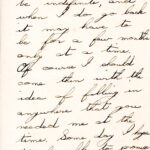 be indefinite, and
when I do go back
it may have to
be for a few months
only at a time.
Of course I should
come then with the
idea of falling in
anywhere that you
needed me at the
time. Some day I hope